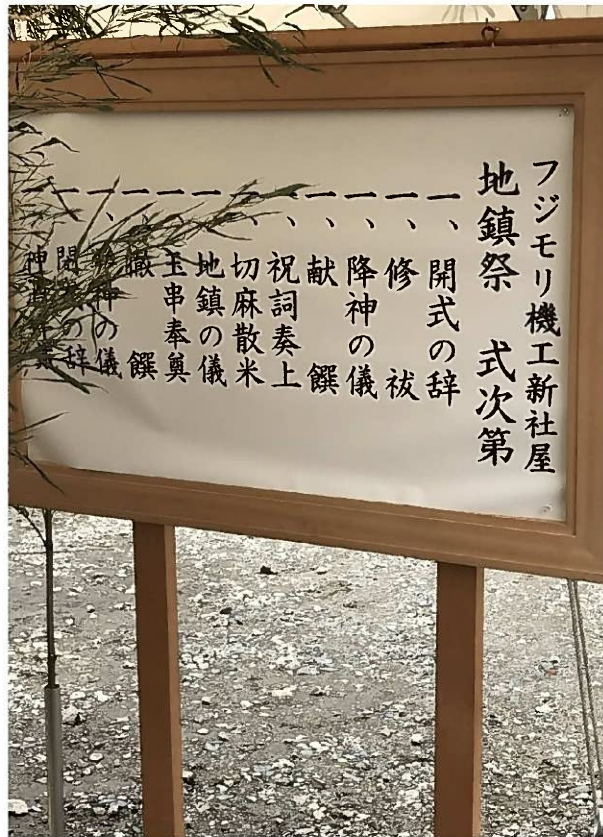 フジモリ機工新社屋
地鎮祭　式次第
一、開式の辞
一、修　祓
一、降神の儀
一、献　饌
一、祝詞奏上
一、切麻散米
一、地鎮の儀
一、玉串奉奠
一、撤　饌
一、昇神の儀
一、閉式の辞